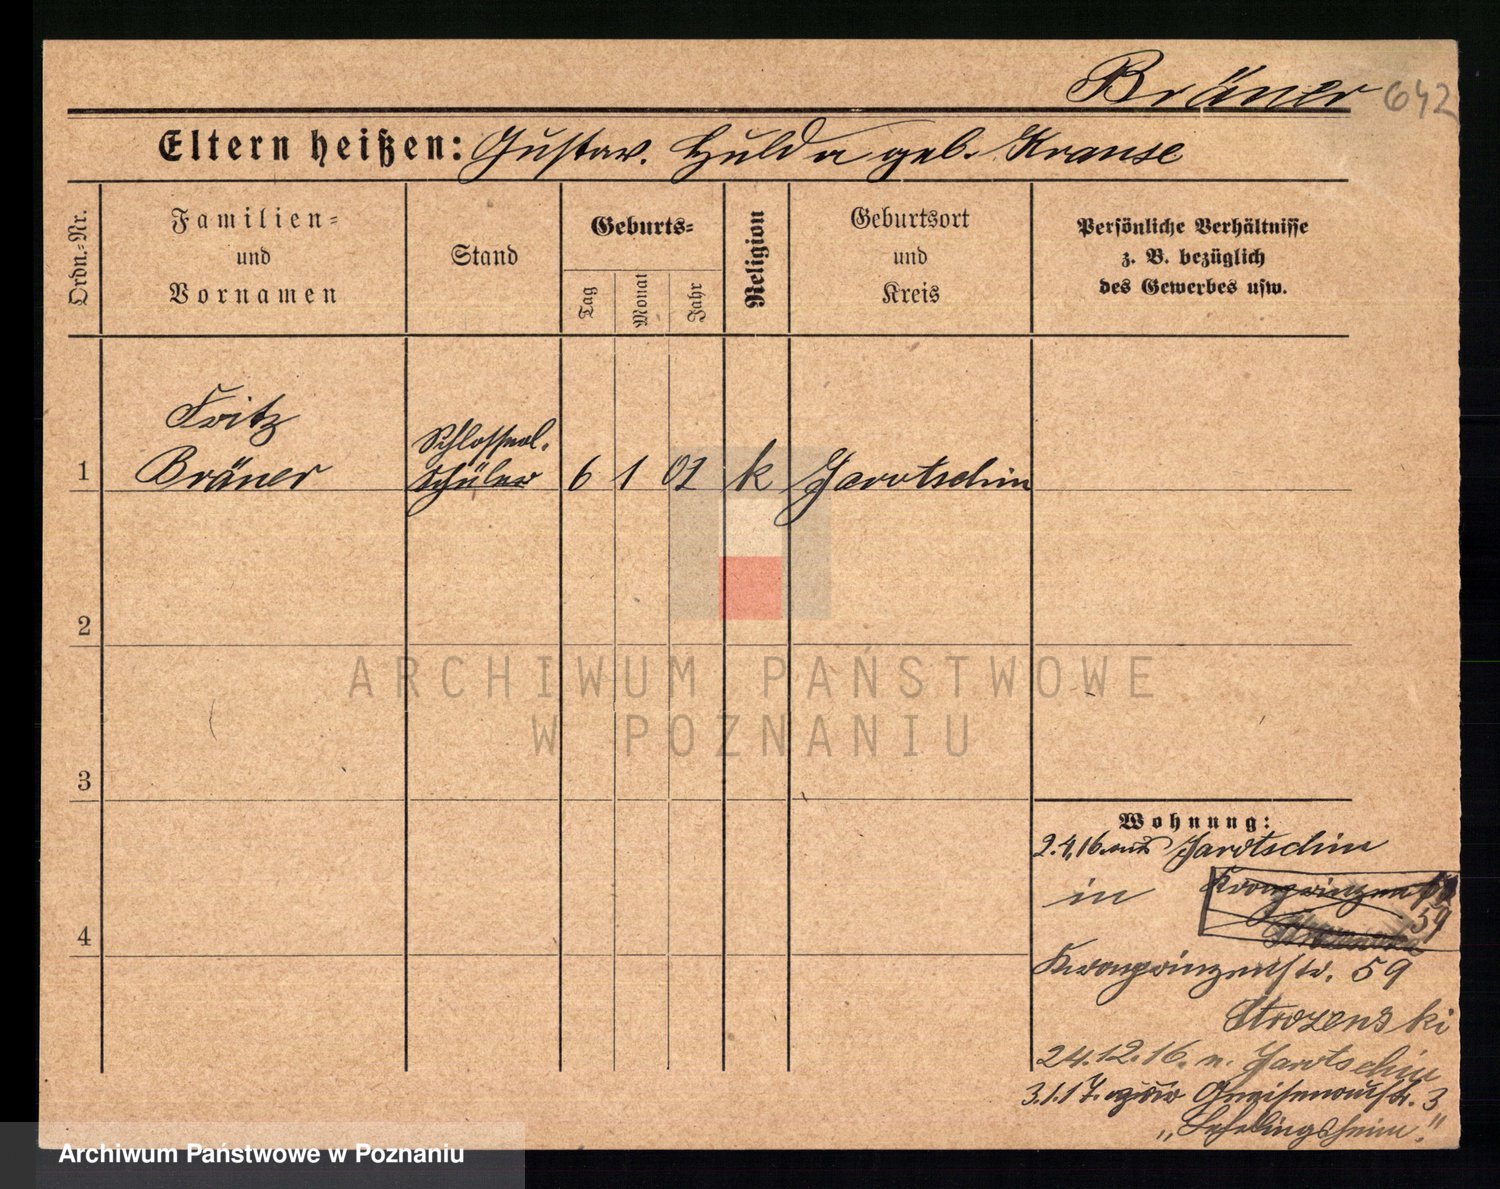 Bräner 642
Eltern heißen: Gustav. Hulda geb. Krause
Ordn.-Nr.
Familien-
und
Vornamen
Stand
Geburts-
Tag
Monat
Jahr
Religion
Geburtsort
und
Kreis
Persönliche Verhältnisse
z. B. bezüglich
des Gewerbes usw.
1
Fritz
Bräner
Schüler
6 1 01 k Jarotschin
2
3
4
ARCHIWUM PAŃSTWOWE
W POZNANIU
Wohnung:
2.4.16 aus Jarotschin
in Kronprinzen
59
Kronprinzenstr. 59
Strozenski
24.12.16. n. Jarotschin
3.1.17. Gneisenaustr. 3
„Lehrlingsheim."
Archiwum Państwowe w Poznaniu